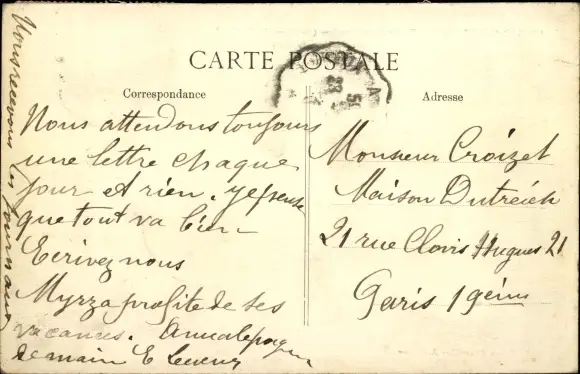 CARTE POSTALE
Correspondance
Adresse
Nous recevons les journaux
Nous attendons toujours
une lettre chaque
jour et rien. Je pense
que tout va bien
Ecrivez nous
Myrza profite de ses
vacances.
demain E
Monsieur Croizet
Maison Dutreich
21 rue Clovis Hugues 21
Paris 19èm